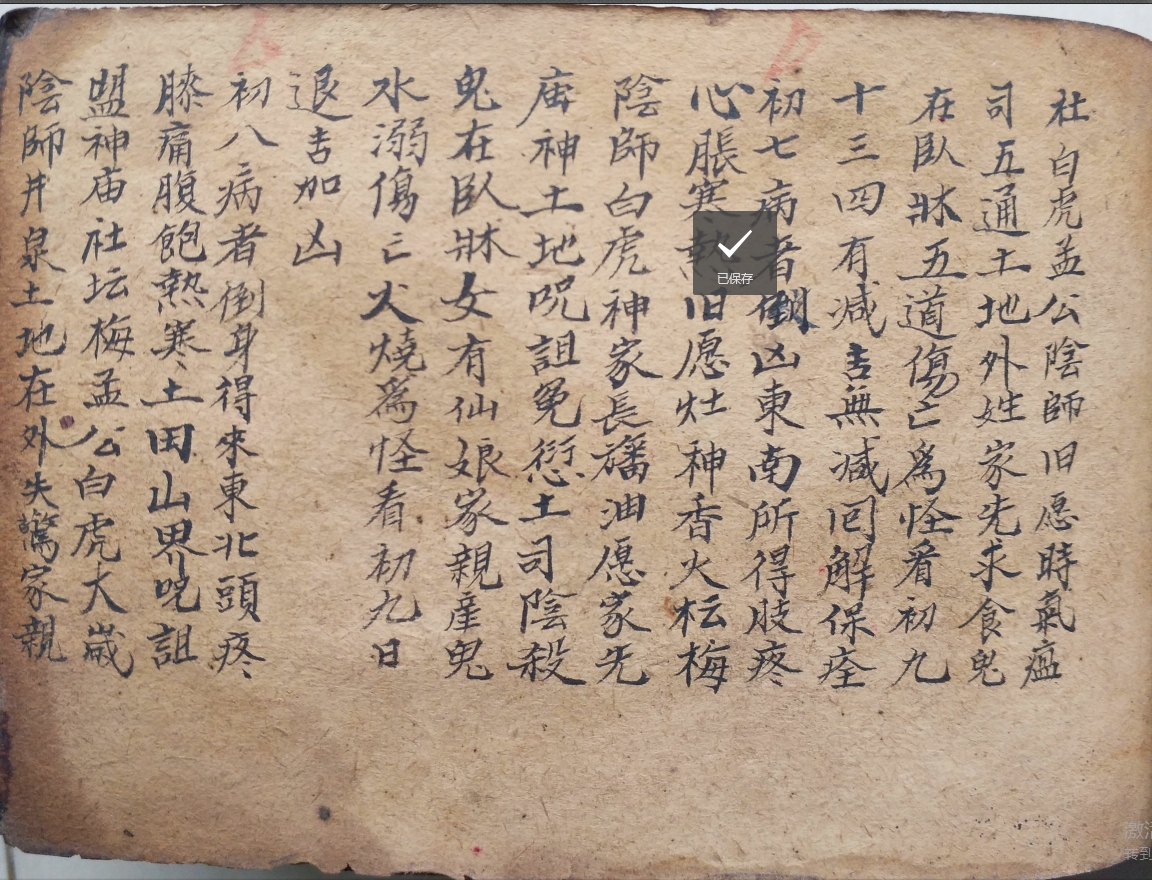 社白虎孟公陰師旧愿時氣瘟
司五通土地外姓家先求食鬼
在臥牀五道傷亡爲怪看初九
十三四有减吉無减囘解保痊
初七病者倒凶東南所得肢疼
心脹寒熱旧愿灶神香火枟梅
陰師白虎神家長旛油愿家先
庙神土地呪詛冤愆土司陰殺
鬼在臥牀女有仙娘家親産鬼
水溺傷亡火燒爲怪看初九日
退吉加凶
初八病者倒身得來東北頭疼
膝痛腹飽熱寒土田山界呪詛
盟神庙社坛梅孟公白虎大嵗
陰師井泉土地在外失驚家親
已保存